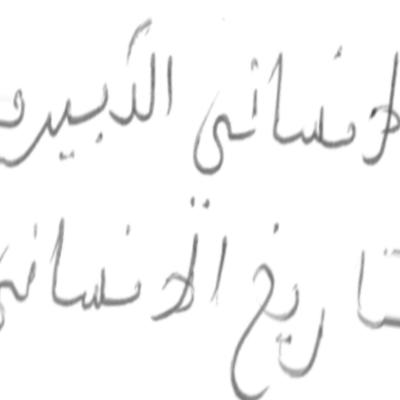 لانساني الكبير و
تاريخ الانساني